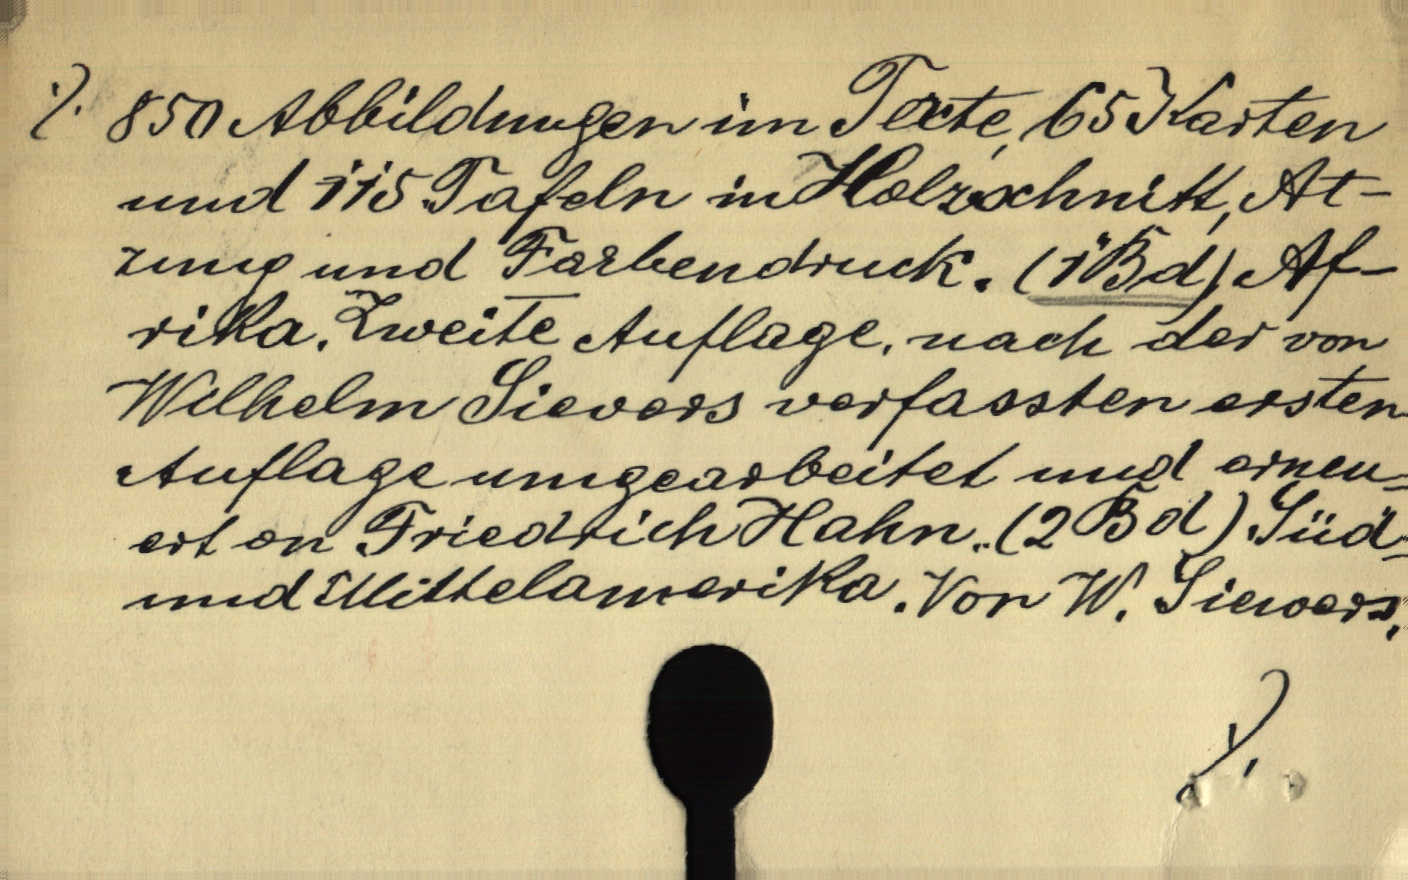 ·/. 850 Abbildungen im Texte, 65 Karten
und 115 Tafeln in Holzschnitt, At-
zung und Farbendruck. (1 Bd) Af-
rika. Zweite Auflage, nach der von
Wilhelm Sievers verfassten ersten
Auflage umgearbeitet und erneu-
ert on Friedrich Hahn.. (2 Bd) Süd-
und Mittelamerika. Von W. Sievers.
·/.